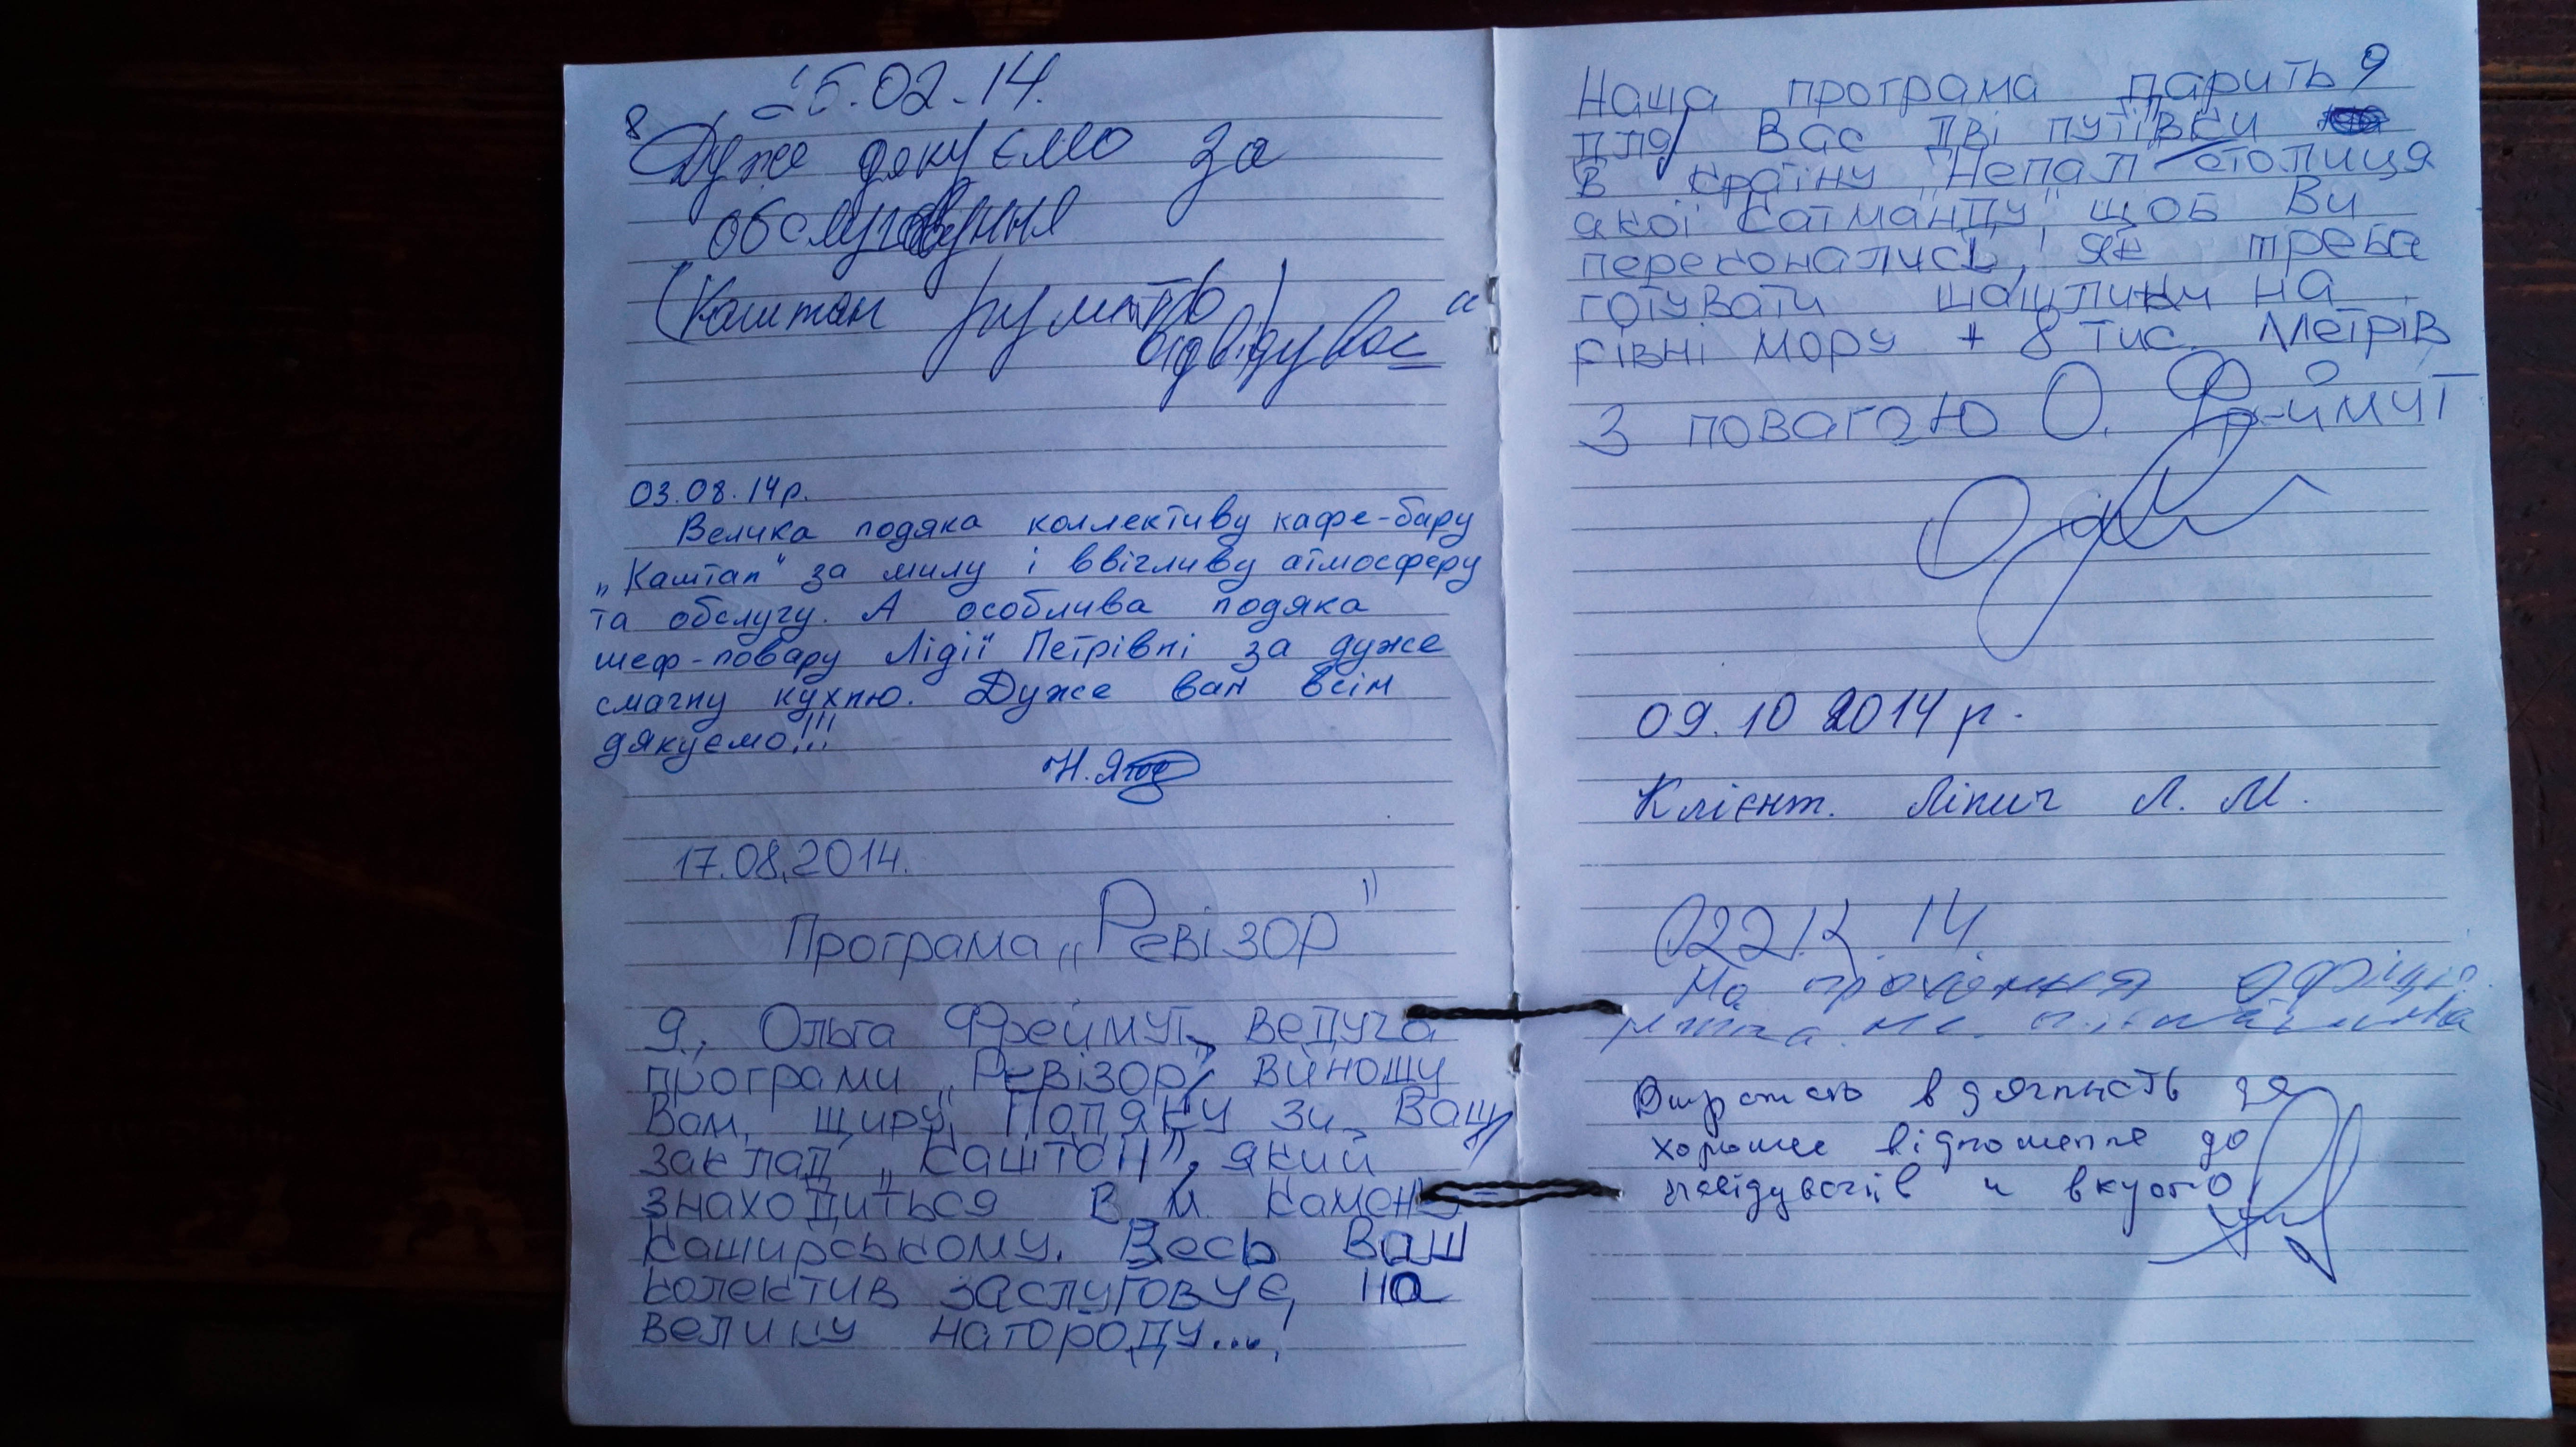 8
25.02.14.
Дуже дякуємо за
обслуговування
(Каштан
відвідувач
03.08.14р.
Велика подяка коллективу кафе-бару
„Каштан" за милу і ввігливу атмосферу
та обслугу. А особлива подяка
шеф-повару Лідії Петрівні за дуже
смачну кухню. Дуже вам всім
дякуємо!!!
Н.
17.08.2014.
Програма „Ревізор"
Я, Ольга Фреймут, ведуча
програми „Ревізор", виношу
Вам щиру подяку за Ваш
заклад „Каштан", який
знаходиться в м. Камень
Каширському. Весь Ваш
колектив заслуговує, на
велику нагороду...!
9
Наша програма дарить
для Вас дві путівки
в країну „Непал столиця
якої Катманду", щоб Ви
переконались, як треба
готувати шашлики на
рівні мору + 8 тис. метрів
З повагою О. Фреймут
09.10 2014 р.
Клієнт. Ліпич Л. М.
14.
На прохання
вдячність за
хороше відношення до
відвідувачів и вкусно